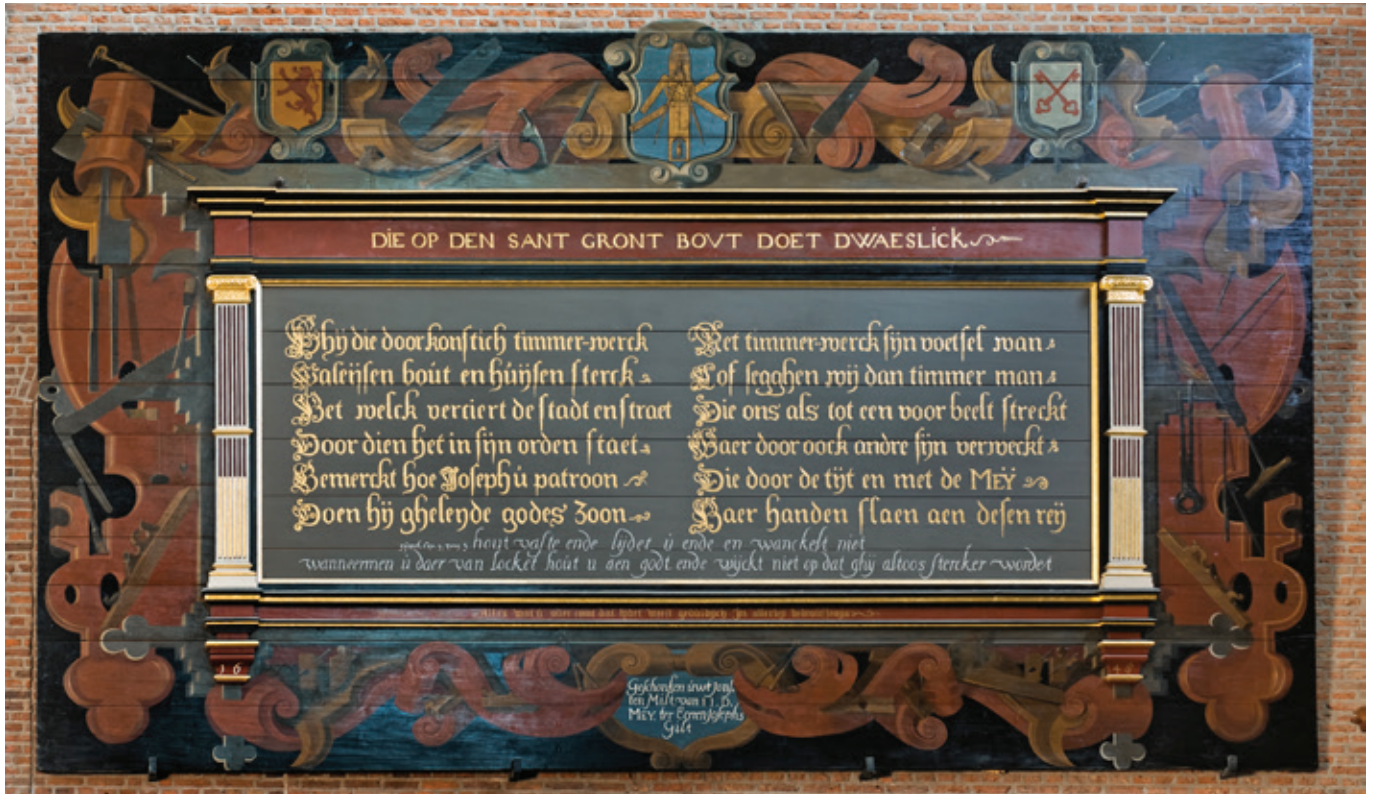 DIE OP DEN SANT GRONT BOVT DOET DWAESLICK
Ghij die door konstich timmer-werck
Paleijsen bout en húijsen sterck
Het welck verciert de stadt en straet
Door dien het in sijn orden staet
Bemerckt hoe Joseph ú patroon
Doen hij gheleyde godes Zoon
Met timmer-werck sijn voetsel wan
Lof segghen wij dan timmer man
Die ons als tot een voor beelt streckt
Waer door oock andre sijn verweckt
Die door de tijt en met de MEŸ
Haer handen slaen aen desen reij
hout vaste ende lijdet ú ende en wanckelt niet
wanneermen ú daer van locket hout u aen godt ende wijckt niet op dat ghij altoos stercker wordet
16
Geschoncken
MEY ter Eeren Josephs
Gilt